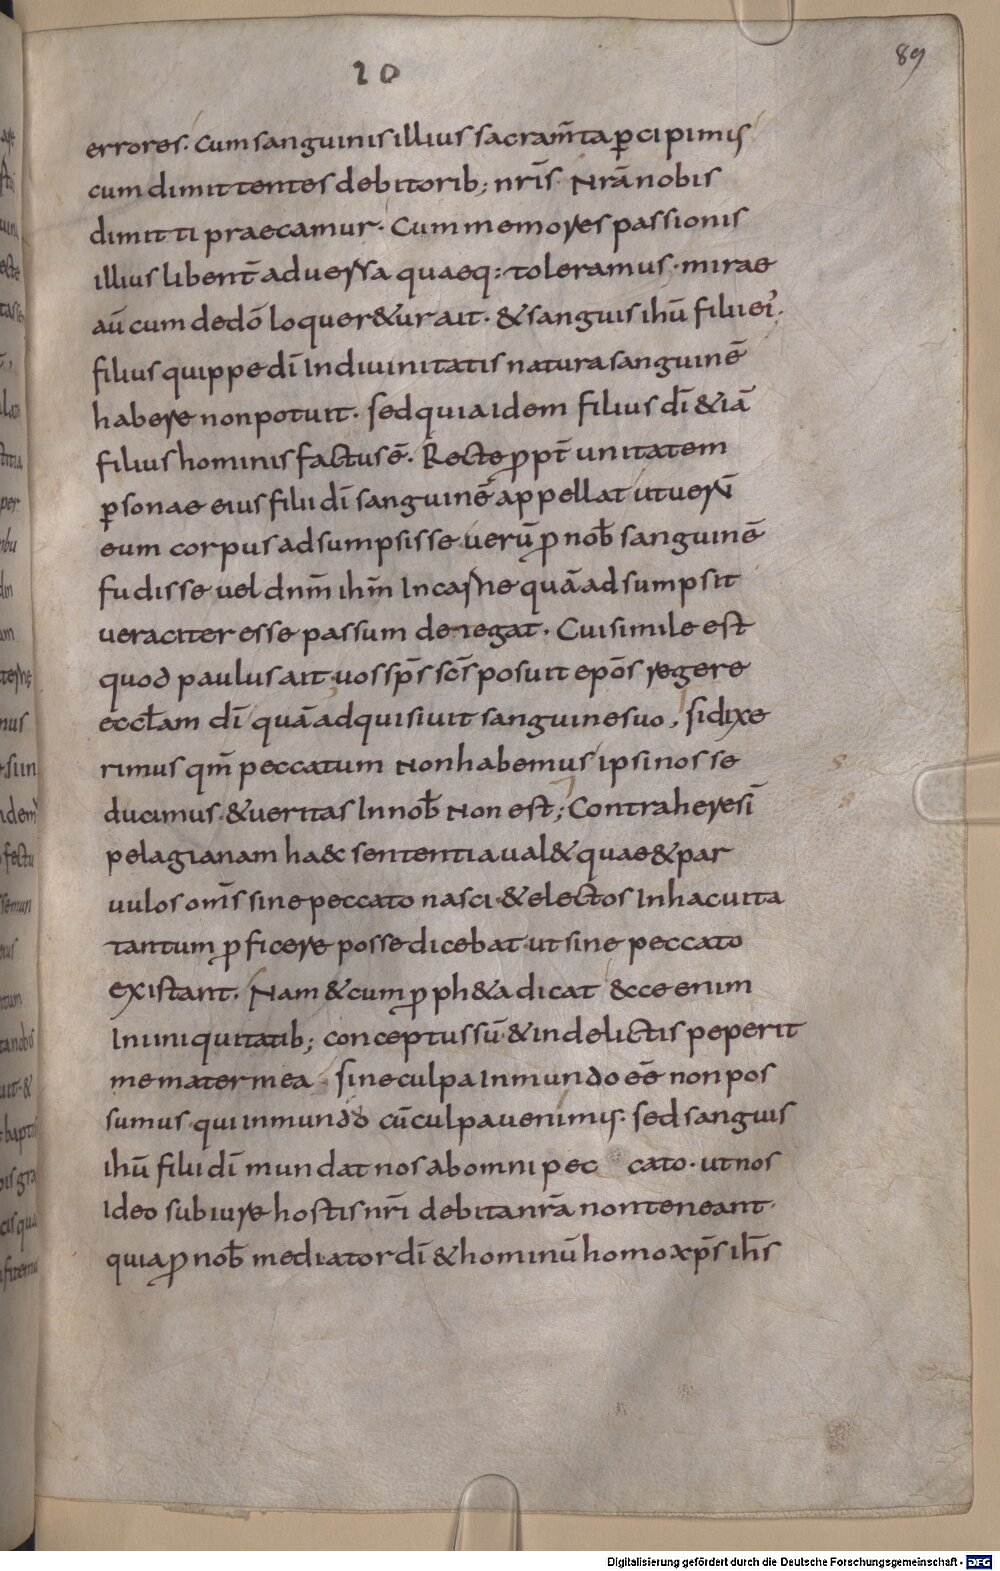 10
89
errores. Cum sanguinis illius sacram̄ta ꝑcipimus
cum dimittentes debitorib; nr̄is. Nrā nobis
dimitti praecamur. Cum memores passionis
illius libent̄ aduersa quaeq: toleramus. mirae
aū cum dedō loquer&ur ait. & sanguis ihū filii ei'.
filius quippe dī In diuinitatis natura sanguinē
habere non potuit. sed quia idem filius dī & iā
filius hominis factus ē. Recte ꝓpt̄ unitatem
ꝑsonae eius filii dī sanguinē appellat ut uerū
eum corpus adsumpsisse uerū ꝓ nob̄ sanguinē
fudisse uel dnm̄ ihm̄ In carne quā adsumpsit
ueraciter esse passum denegat. Cui simile est
quod paulus ait uos sp̄s sc̄s posuit epōs regere
eccl̄am dī quā adquisiuit sanguine suo, si dixe
rimus qm̄ peccatum Non habemus ipsi nos se
ducimus. & ueritas In nob̄ Non est; Contra heresī
pelagianam haec sententia ual& quae & par
uulos om̄s sine peccato nasci & electos In hac uita
tantum ꝓficere posse dicebat ut sine peccato
existant. Nam & cum ꝓph&a dicat &cce enim
In iniquitatib; conceptus sū & in delictis peperit
me mater mea sine culpa In mundo eē non pos
sumus qui in mundo cū culpa uenimus. sed sanguis
ihū filii dī mundat nos ab omni pec cato. ut nos
Ideo sub iure hostis nr̄i debita nrā non teneant.
quia ꝓ nob̄ mediator dī & hominū homo xp̄s ih̄s
Digitalisierung gefördert durch die Deutsche Forschungsgemeinschaft - DFG